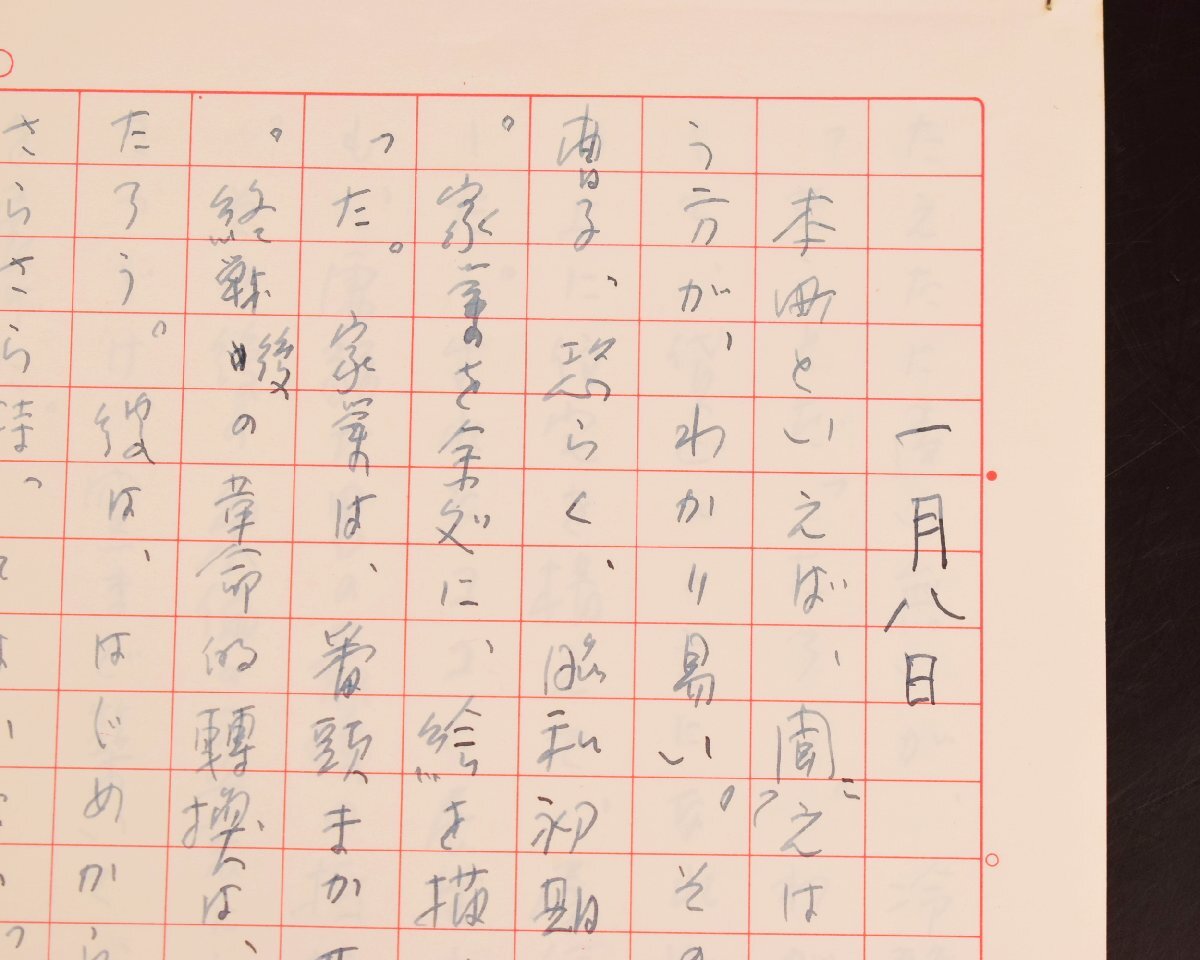 一月八日
本町といえば、聞こえは
う方が、わかり易い。その
曹子に、恐らく、昭和初期
。家業を余処に、絵を描
った。家業は、番頭まか
。終戦後の革命的轉換は、
たろう。彼は、はじめから
さらさら持っ